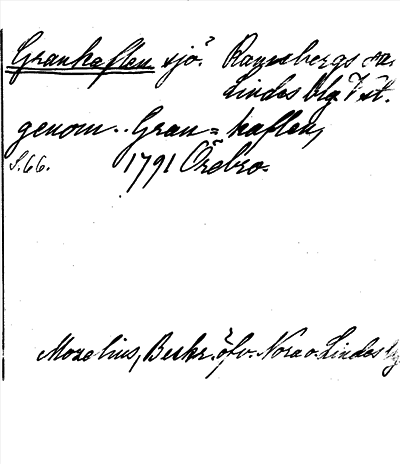 Granhaflen sjö. Ramsbergs sn.
Lindes blg Vst.
genom.. Gran = haflen,
S.66. 1791 Örebro.
Mozelius, Beskr. öfv. Nora o. Lindes bg